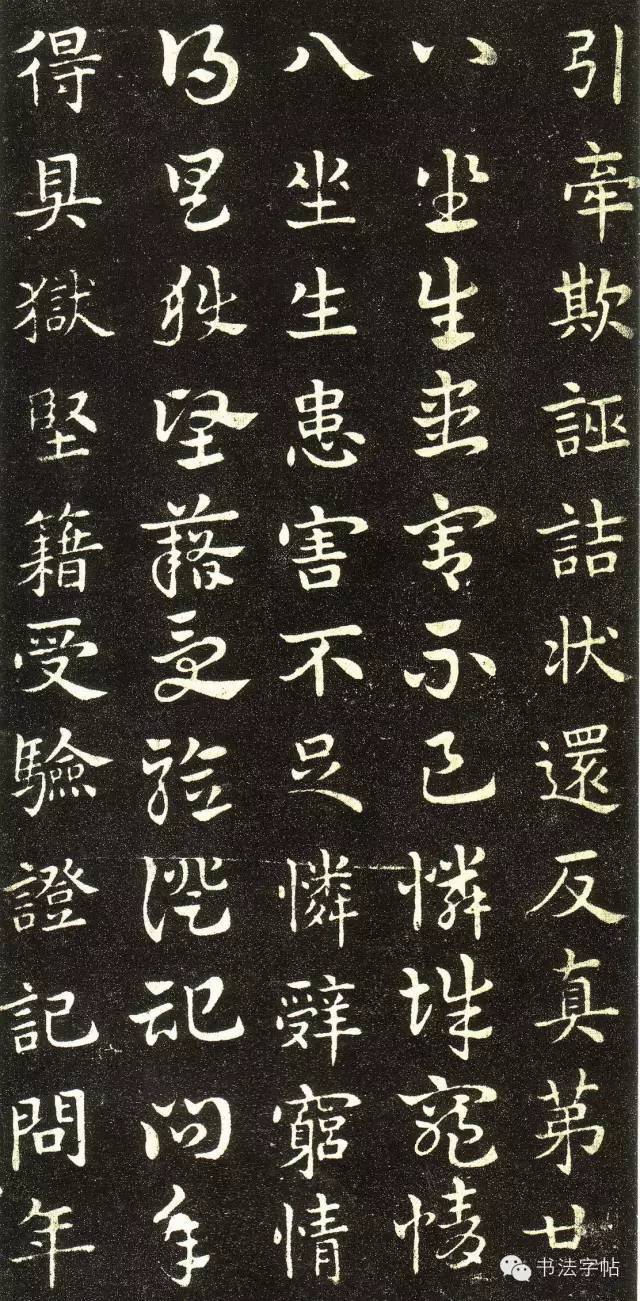 引牽欺誣詰状還反真第廿
八坐生患害不足憐辭窮情
八坐生患害不足憐辭窮情
得具獄堅籍受驗證記問年
得具獄堅籍受驗證記問年
书法字帖